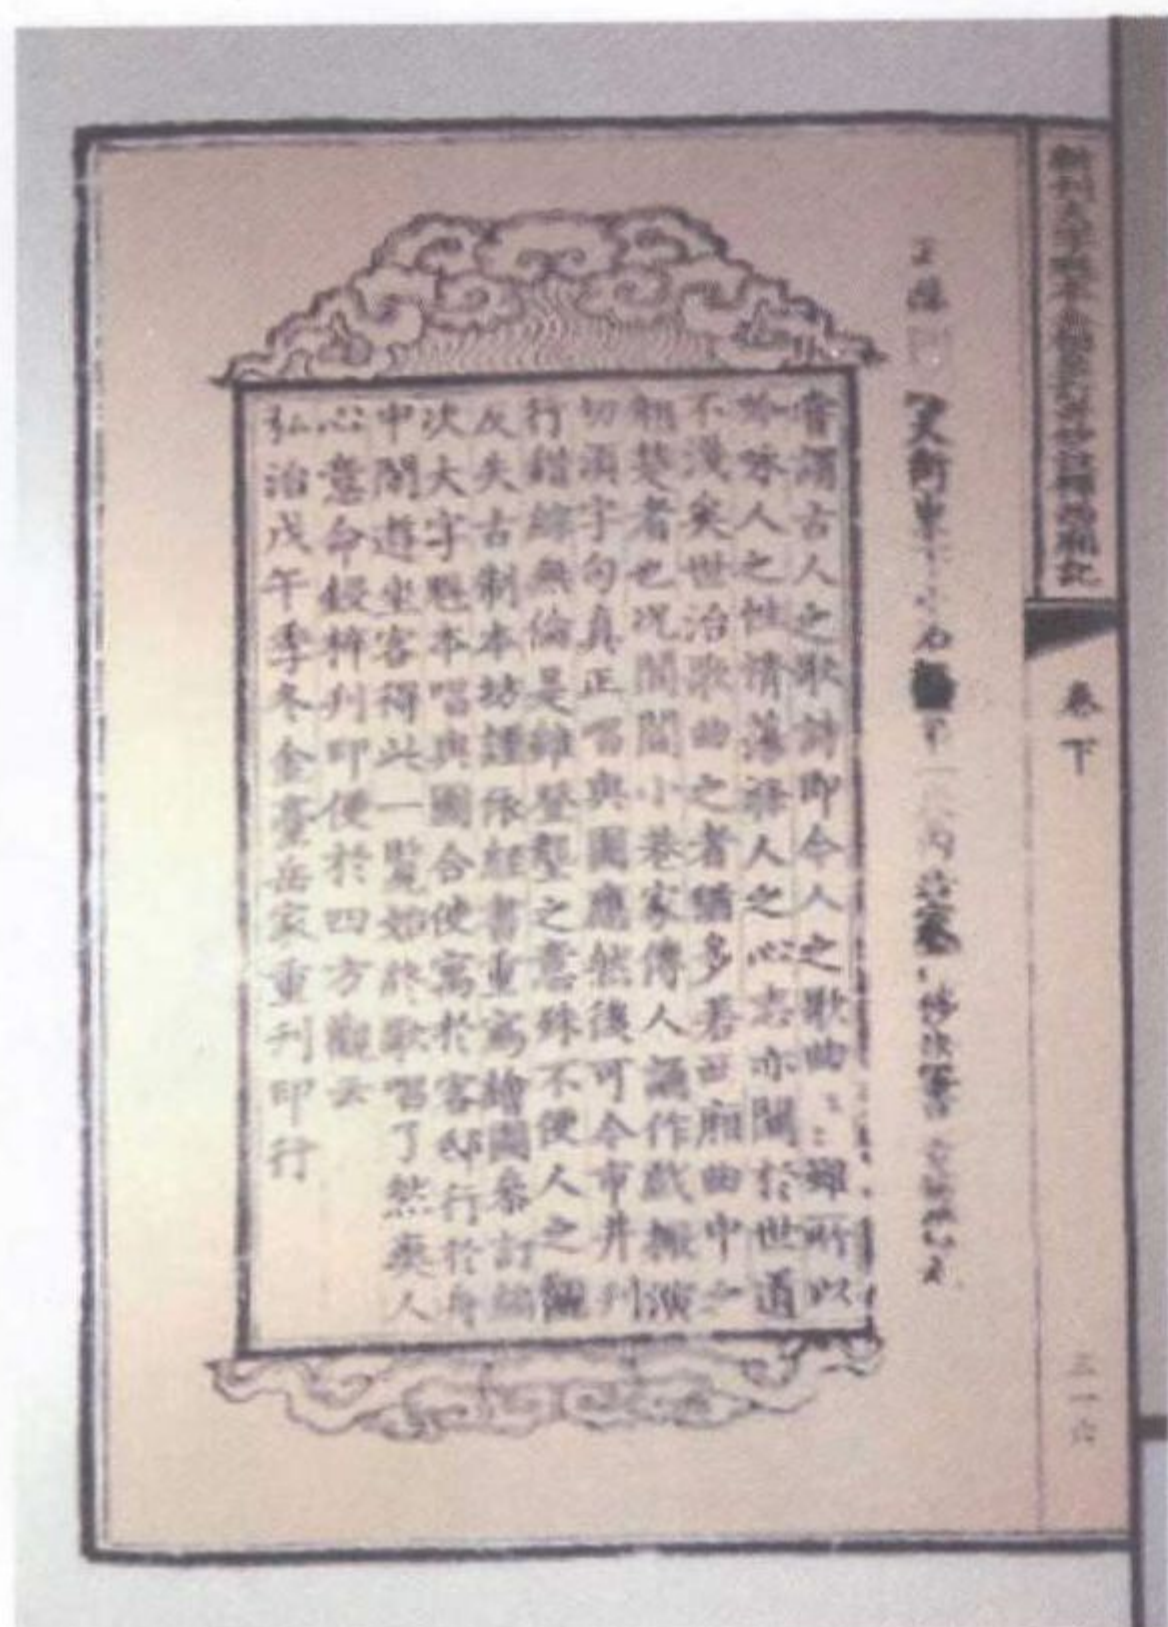 卷下
嘗謂古人之歌詩即今人之歌曲歌曲雖所以
吟咏人之性情蕩滌人之心志亦關於世道
不淺矣世治歌曲之者猶多若西廂曲中之
翹楚者也况閭閻小巷家傳人誦作戲搬演
切須字句真正唱與圖應然後可令市井刊
行錯綜無倫是雖登壟之意殊不便人之觀
反失古制本坊謹依經書重寫繪圖參訂編
次大字魁本唱與圖合使寓於客邸行於舟
中閒遊坐客得此一覽始終歌唱了然爽人
心意命鋟梓刊印便於四方觀云
弘治戊午季冬金臺岳家重刊印行